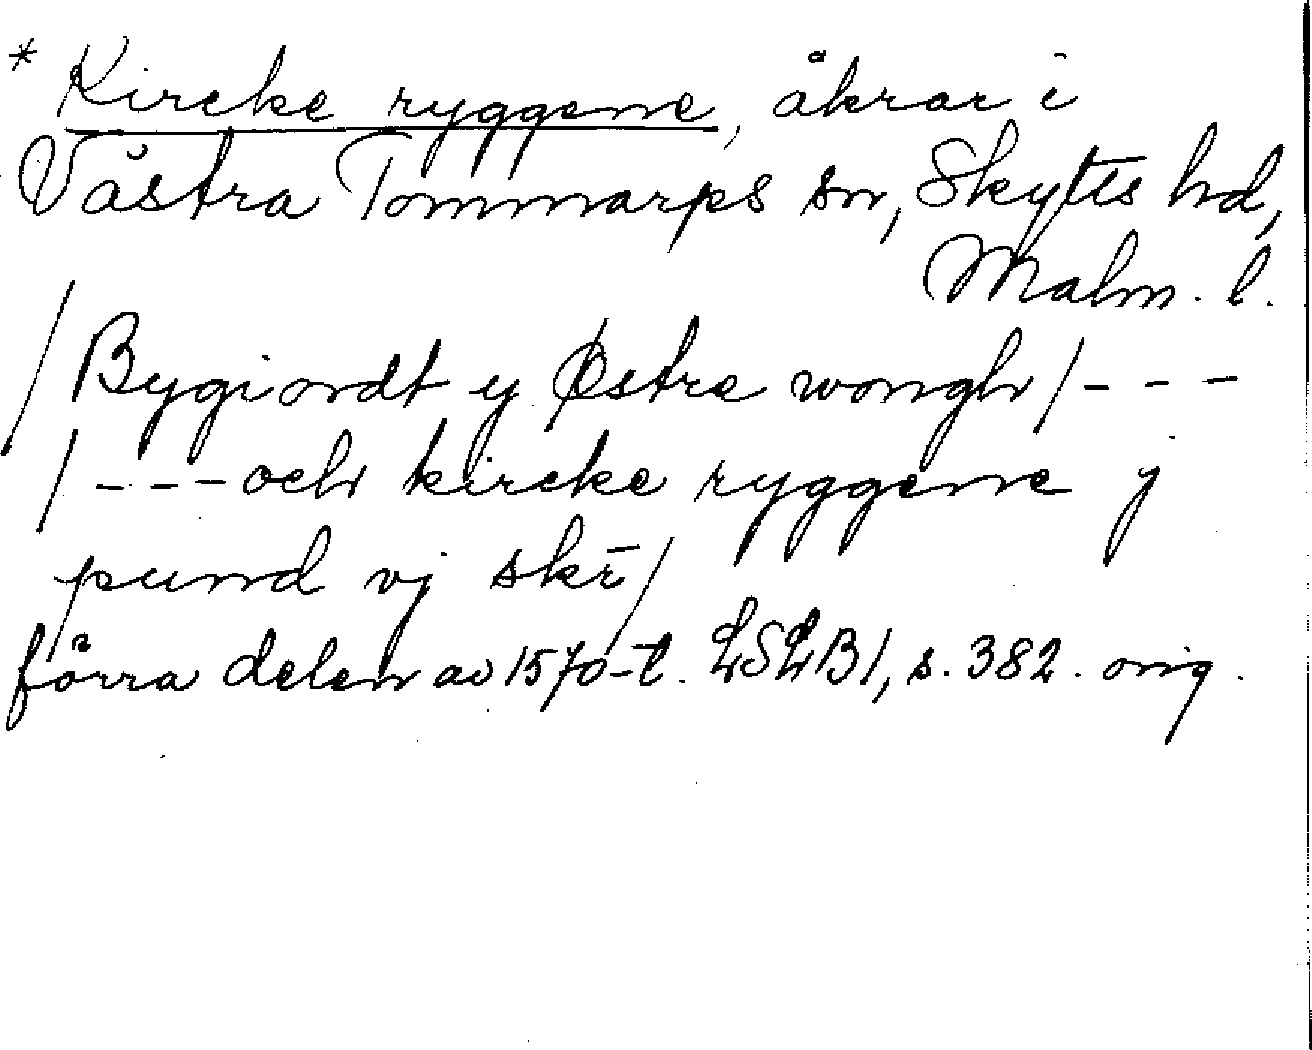 * Kircke ryggene, åkrar i
Västra Tommarps sn, Skytts hd,
Malm. l.
/Bygiordt y Østre wongh/---
/---och kircke ryggene j
pund vj skr̄/
förra delen av 1570-t. LSLB1, s. 382. orig.